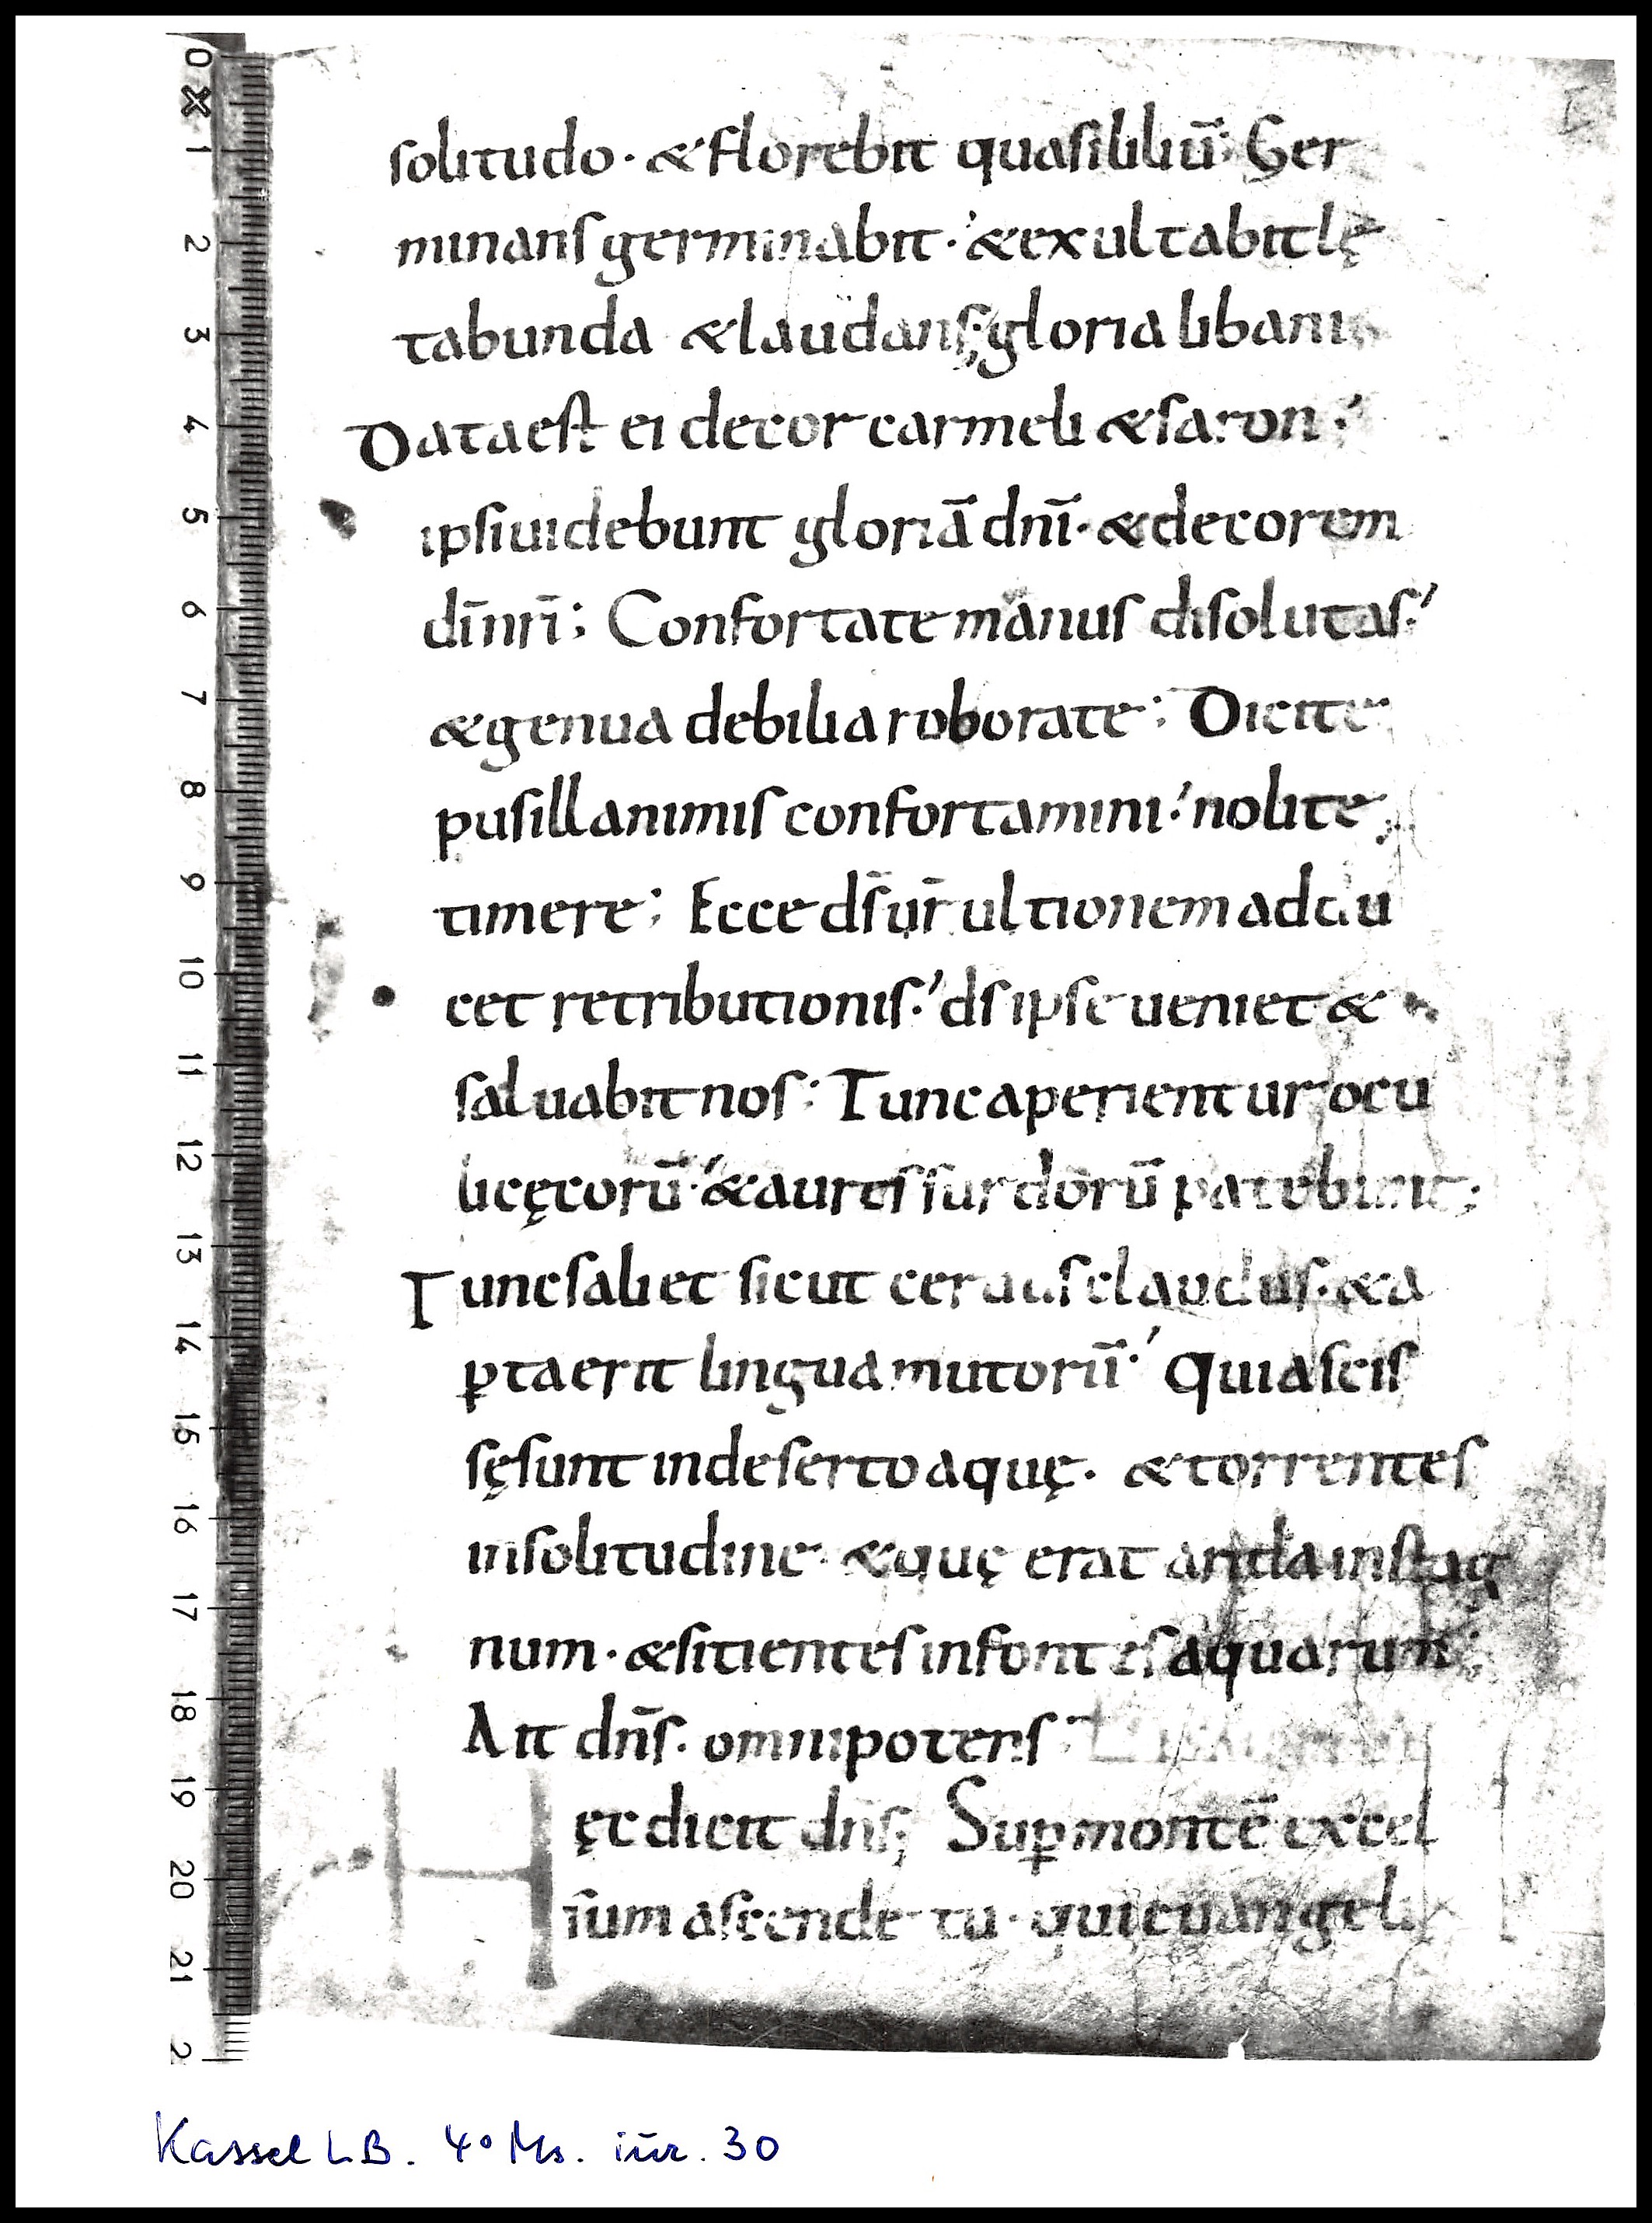 solitudo · & florebit quasi liliū ; Ger
minans germinabit ·' & exultabit lę
tabunda & laudans ; gloria libani
Data est ei decor carmeli & saron ·'
ipsi uidebunt gloriā dnī · & decorem
dī nrī ; Confortate manus disolutas ·'
& genua debilia roborate ; Dicite
pusillanimis confortamini ·' nolite
timere ; Ecce ds̄ ur̄ ultionem addu
cet retributionis ·' ds ipse ueniet &
saluabit nos ; Tunc aperientur ocu
li cęcorū ·' & aures surdorū patebunt ;
Tunc saliet sicut ceruus claudus · & a
ꝑta erit lingua mutorū ·' Quia scis
sę sunt in deserto aquę · & torrentes
in solitudine · & quę erat arida in stag
num · & sitientes in fontes aquarum ;
Ait dn̄s · omnipotens
Hęc dicit dn̄s ; Suꝑ montē excel
sum ascende tu · qui euangeli
Kassel LB. 4° Ms. iur. 30
0 1 2 3 4 5 6 7 8 9 10 11 12 13 14 15 16 17 18 19 20 21 2